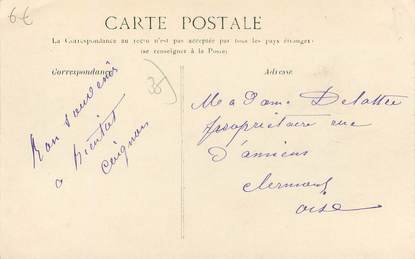 6€
CARTE POSTALE
La Correspondance au recto n'est pas acceptée par tous les pays étrangers
(se renseigner à la Poste)
Correspondance
Adresse
Bon souvenir
a bientot
36
Madame Delattre
propriétaire rue
D'amiens
clermont
oise